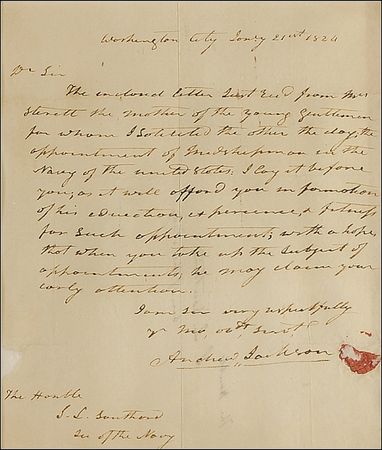 Washington City Jany 21st 1824
Dr Sir
The inclosed letter Just Recd from Mrs
Sterett the mother of the young gentleman
for whom I Solicited the other the day, the
appointment of Medshipman in the
Navy of the united States. I lay it before
you, as it will afford you information
of his education, experience, & fitness
for such appointment; with a hope,
that when you take up the subject of
appointments, he may claim your
early attention.
I am Sir very respectfully
yr mo, obt, Servt
Andrew Jackson
The Honble
S. L. Southard
Sec of the Navy